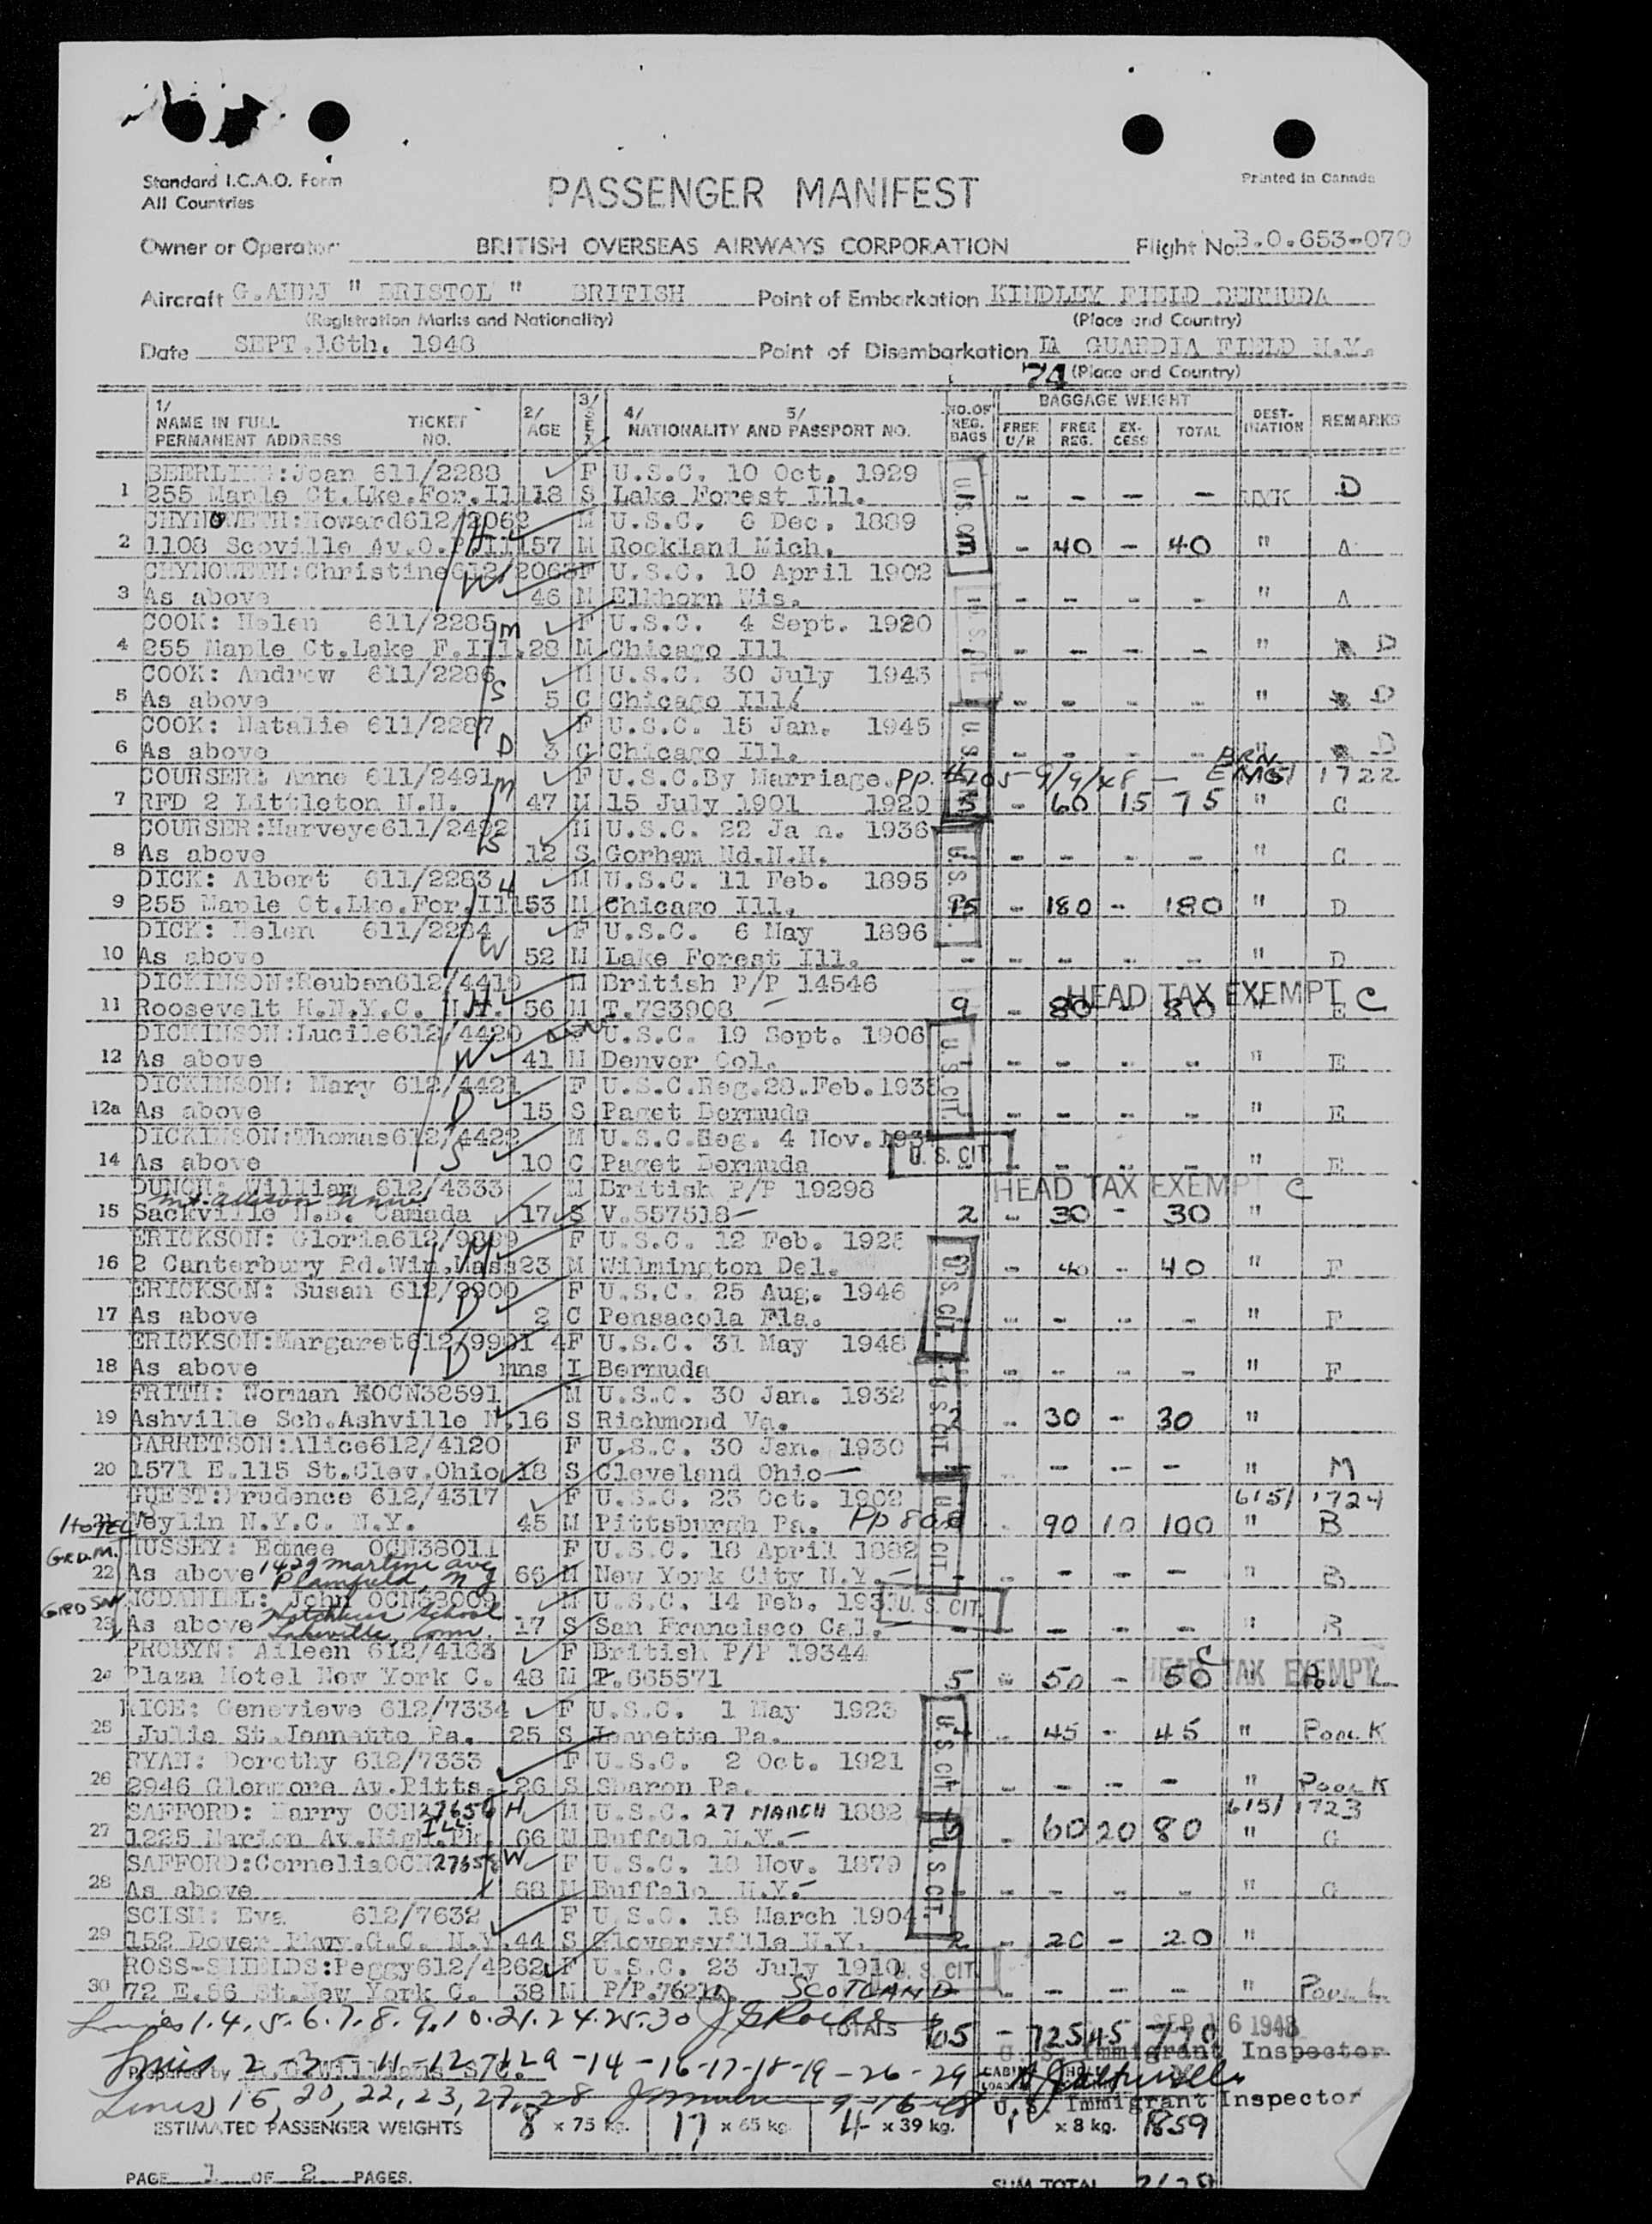 Standard I.C.A.O. Form
All Countries
PASSENGER MANIFEST
Printed in Canada
Owner or Operator BRITISH OVERSEAS AIRWAYS CORPORATION Flight No. B.O.653-070
Aircraft G.AHEJ " BRISTOL " BRITISH Point of Embarkation KINDLEY FIELD BERMUDA
(Registration Marks and Nationality) (Place and Country)
Date SEPT.16th. 1948 Point of Disembarkation LA GUARDIA FIELD N.Y.
(Place and Country)
1/ NAME IN FULL PERMANENT ADDRESS TICKET NO. 2/ AGE 3/ SEX 4/ 5/ NATIONALITY AND PASSPORT NO. NO. OF REG. BAGS BAGGAGE WEIGHT FREE U/R FREE REG. EX-CESS TOTAL DEST-INATION REMARKS
BEERLING:Joan 611/2288 F U.S.C. 10 Oct. 1929
1 255 Maple Ct.Lke.For.Ill 18 S Lake Forest Ill. - - - - D
CHYNOWETH:Howard 612/2062 H M U.S.C. 6 Dec. 1889
2 1108 Scoville Av.O.P.Ill 57 M Rockland Mich. 3 - 40 - 40 " A
CHYNOWETH:Christine 612/2063 W F U.S.C. 10 April 1902
3 As above 46 M Elkhorn Wis. - - - - - " A
COOK: Helen 611/2285 M F U.S.C. 4 Sept. 1920
4 255 Maple Ct.Lake F.Ill. 28 M Chicago Ill - - - - - " D
COOK: Andrew 611/2286 S M U.S.C. 30 July 1943
5 As above 5 C Chicago Ill - - - - " D
COOK: Natalie 611/2287 D F U.S.C. 15 Jan. 1945
6 As above 3 C Chicago Ill. - - - - " D
COURSER: Anne 611/2491 M F U.S.C.By Marriage. PP. 9/9/48 - 1722
7 RFD 2 Littleton N.H. 47 M 15 July 1901 1920 5 - 60 15 75 " C
COURSER:Harveye 611/2492 S M U.S.C. 22 Ja n. 1936
8 As above 12 S Gorham Nd.N.H. - - - - " C
DICK: Albert 611/2283 H M U.S.C. 11 Feb. 1895
9 255 Maple Ct.Lke.For.Ill 53 M Chicago Ill. 15 - 180 - 180 " D
DICK: Helen 611/2284 W F U.S.C. 6 May 1896
10 As above 52 M Lake Forest Ill. - - - - - " D
DICKINSON:Reuben 612/4419 H M British P/P 14546 HEAD TAX EXEMPT C
11 Roosevelt H.N.Y.C. N.Y. 56 M T.723908 9 - 80 - 80 " E
DICKINSON:Lucile 612/4420 W U.S.C. 19 Sept. 1906
12 As above 41 M Denver Col. - - - - " E
DICKINSON: Mary 612/4421 D F U.S.C.Reg.28.Feb.1933
12a As above 15 S Paget Bermuda - - - - " E
DICKINSON:Thomas 612/4422 S M U.S.C.Reg. 4 Nov.193
14 As above 10 C Paget Bermuda U.S. CIT. - - - - " E
William 612/4333 M British P/P 19298 HEAD TAX EXEMPT C
15 Sackville N.B. Canada 17 S V.557518 2 - 30 - 30 "
ERICKSON: Gloria 612/9899 M F U.S.C. 12 Feb. 1925
16 2 Canterbury Rd.Win.Mass 23 M Wilmington Del. 3 - 40 - 40 " F
ERICKSON: Susan 612/9900 D F U.S.C. 25 Aug. 1946
17 As above 2 C Pensacola Fla. - - - - " F
ERICKSON:Margaret 612/9901 D 4 F U.S.C. 31 May 1948
18 As above mns I Bermuda - - - - " F
FRITH: Norman E OCN38591 M U.S.C. 30 Jan. 1932
19 Ashville Sch.Ashville N. 16 S Richmond Va. 2 - 30 - 30 "
GARRETSON:Alice 612/4120 F U.S.C. 30 Jan. 1930
20 1571 E.115 St.Clev.Ohio 18 S Cleveland Ohio - - - " M
GUEST:Prudence 612/4317 F U.S.C. 23 Oct. 1902 615/ 1724
HOTEL Weylin N.Y.C. N.Y. 45 M Pittsburgh Pa. PP 90 10 100 " B
GRD.M. HUSSEY: Edmee OCN38011 F U.S.C. 18 April 1882
22 As above 1429 Martine Ave Plainfield, N J 66 M New York City N.Y. - - - - - " B
GRD SN MCDANIEL: John OCN38009 M U.S.C. 14 Feb. 193 U.S. CIT.
23 As above Hotchkiss School Lakeville, Conn. 17 S San Francisco Cal. - - - - - " B
PROBYN: Aileen 612/4183 F British P/P 19344 HEAD TAX EXEMPT C
24 Plaza Hotel New York C. 48 M T.665571 5 - 50 - 50 " Pool L
RICE: Genevieve 612/7334 F U.S.C. 1 May 1923
25 Julia St.Jeannette Pa. 25 S Jeanette Pa. - 45 - 45 " Pool K
RYAN: Dorothy 612/7333 F U.S.C. 2 Oct. 1921
26 2946 Glenmore Av.Pitts. 26 S Sharon Pa. - - - - " Pool K
SAFFORD: Harry OCN27656 H M U.S.C. 27 MARCH 1882 615/ 1723
27 1225 Marion Av.High.Pk. ILL. 66 M Buffalo N.Y. - 60 20 80 " G
SAFFORD:Cornelia OCN27658 W F U.S.C. 18 Nov. 1879
28 As above 68 M Buffalo N.Y. - - - - " G
SCISM: Eva 612/7632 F U.S.C. 18 March 1904
29 152 Dover Pkwy.G.C. N.Y. 44 S Gloversville N.Y. 2 - 20 - 20 "
ROSS-SHIELDS:Peggy 612/4262 F U.S.C. 23 July 1910 U.S. CIT.
30 72 E.56 St.New York C. 38 M P/P.7621 SCOTLAND - - - - " Pool L
Lines 1.4.5.6.7.8.9.10.21.24.25.30 TOTALS 65 - 725 45 770 SEP 16 1948
U.S. Immigrant Inspector
Lines 2-3-11-12-12a-14-16-17-18-19-26-29
Prepared by
Lines 15, 20, 22, 23, 27, 28 9-16-48 U.S. Immigrant Inspector
ESTIMATED PASSENGER WEIGHTS 8 x 75 kg. 17 x 65 kg. 4 x 39 kg. 1 x 8 kg. 1859
PAGE 1 OF 2 PAGES. SUM TOTAL